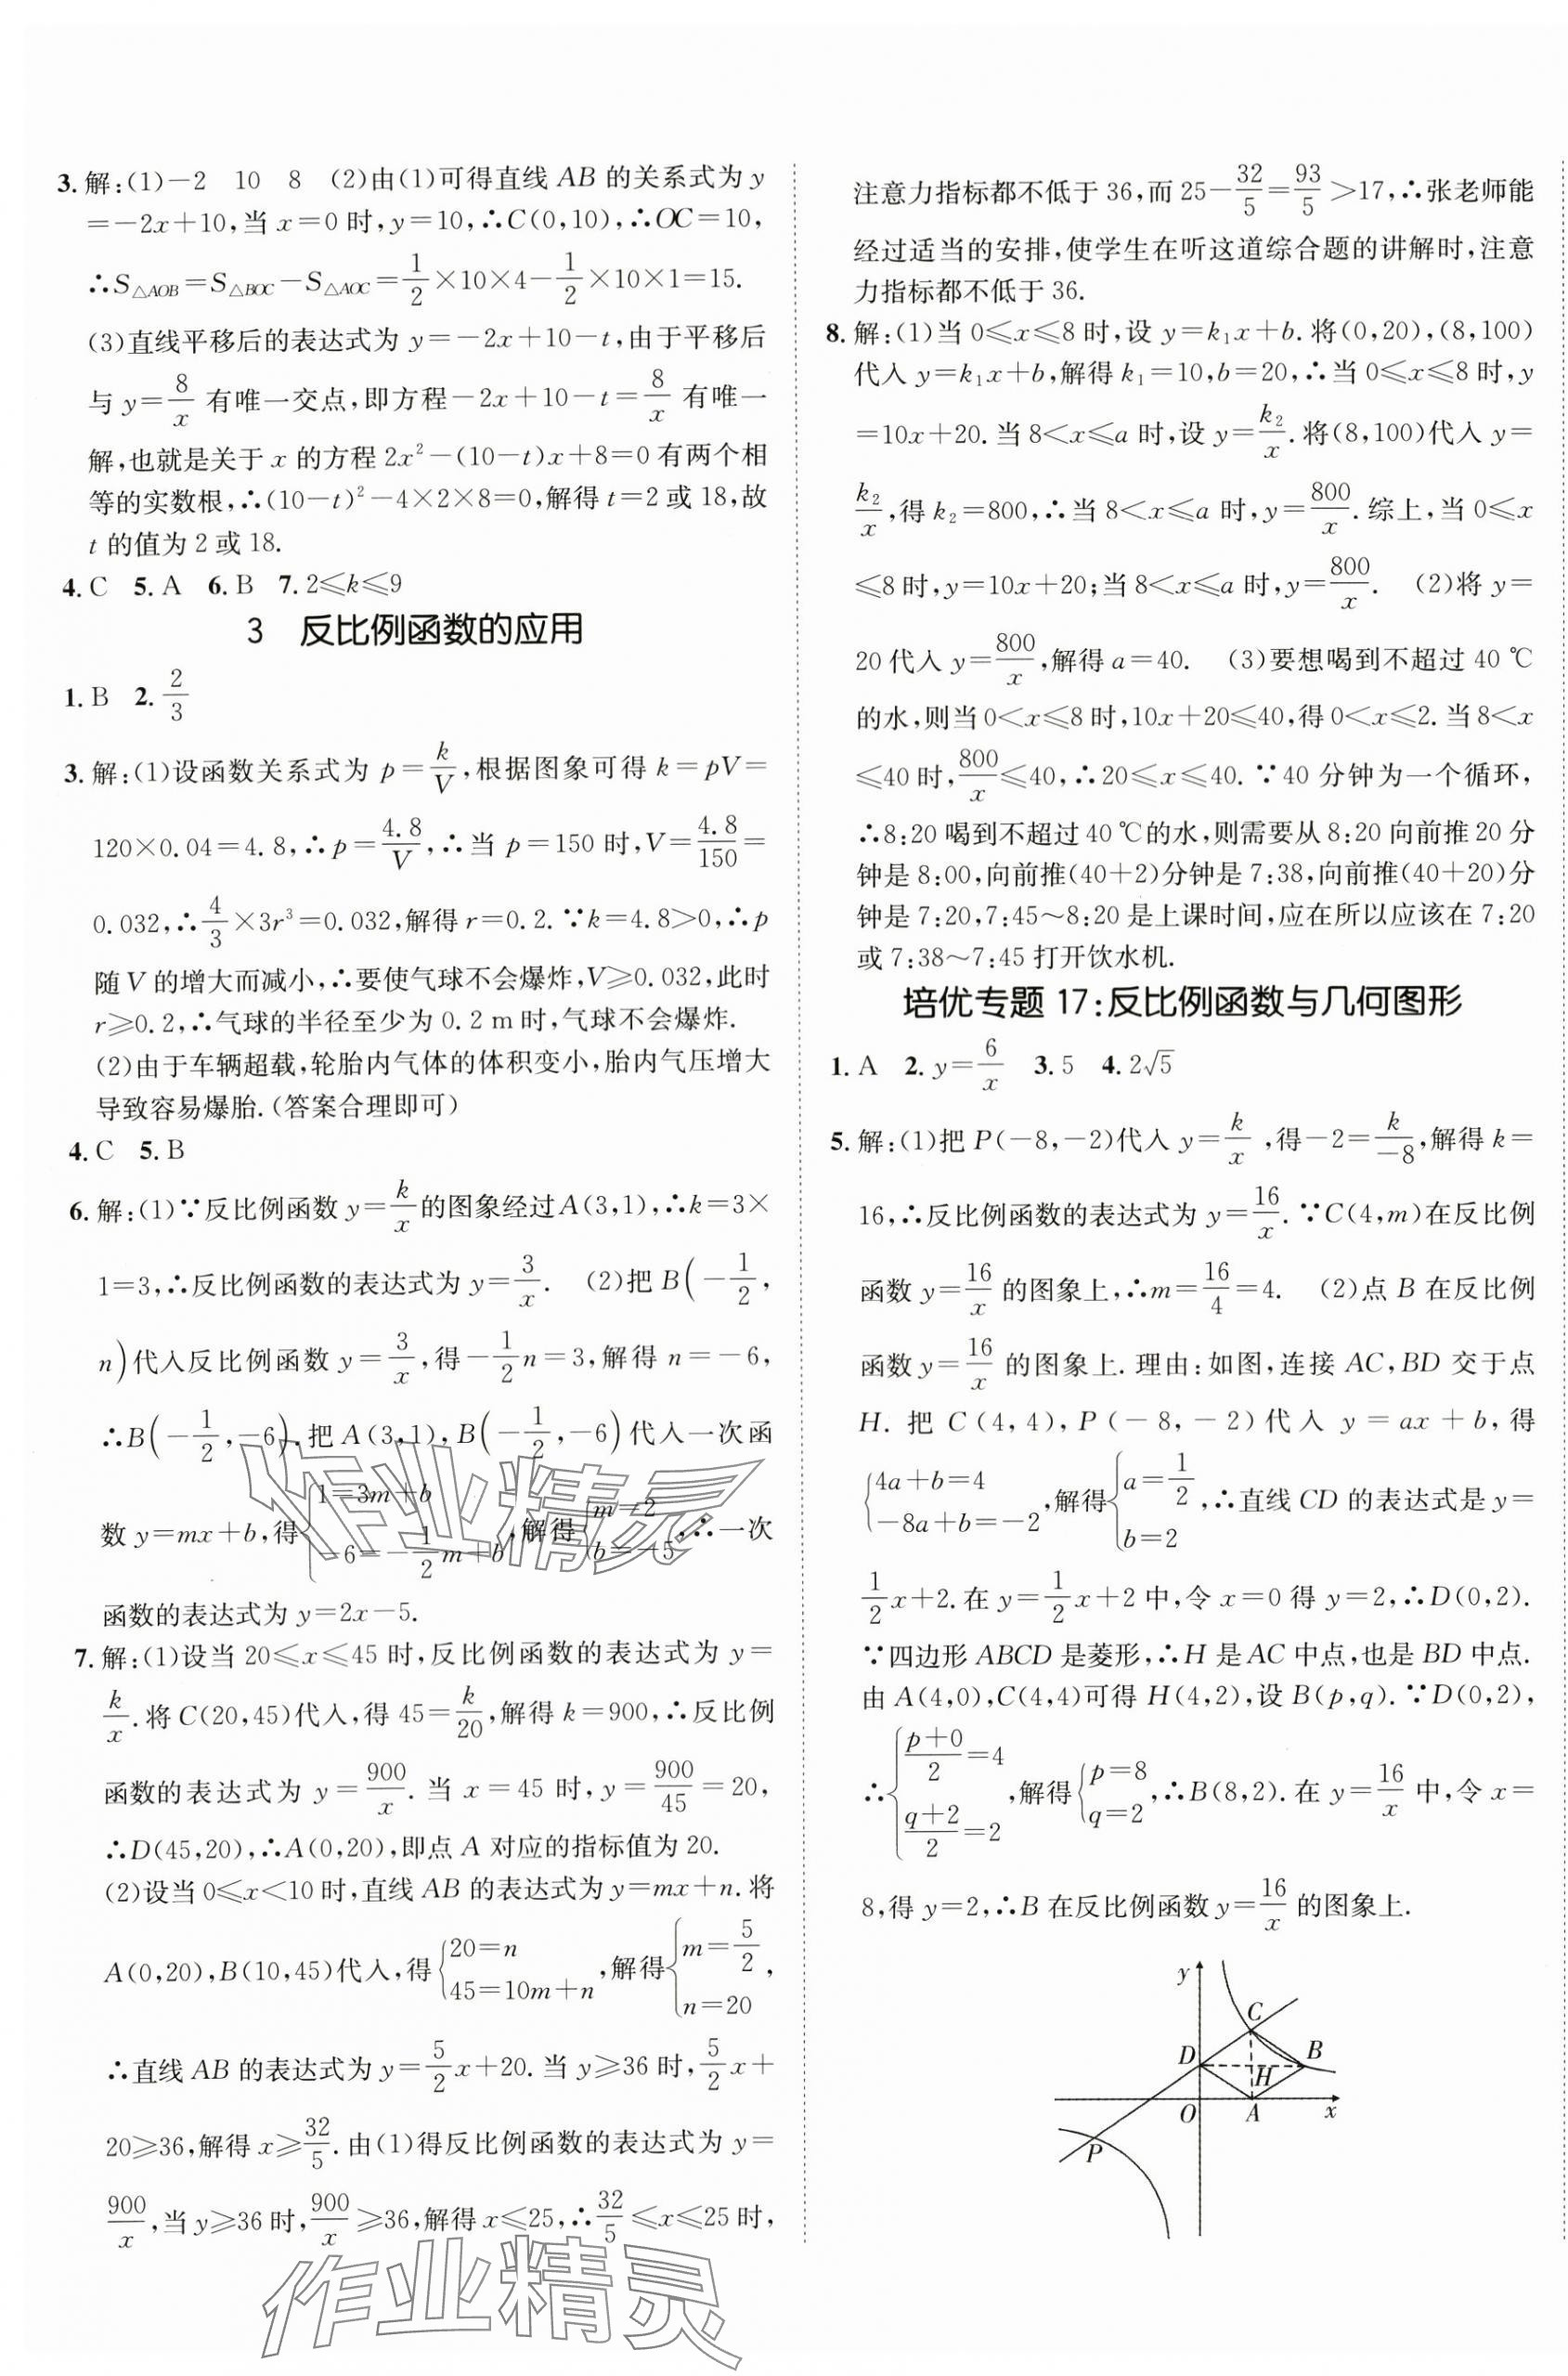 3. 解:(1)-2　10　8　(2)由(1)可得直线 AB 的关系式为 y
=-2x+10,当 x=0 时,y=10,∴C(0,10),∴OC=10,
∴S△AOB=S△BOC-S△AOC=1/2×10×4-1/2×10×1=15.
(3)直线平移后的表达式为 y=-2x+10-t,由于平移后
与 y=8/x 有唯一交点,即方程-2x+10-t=8/x 有唯一
解,也就是关于 x 的方程 2x²-(10-t)x+8=0 有两个相
等的实数根,∴(10-t)²-4×2×8=0,解得 t=2 或 18,故
t 的值为 2 或 18.
4. C　5. A　6. B　7. 2≤k≤9
3　反比例函数的应用
1. B　2. 2/3
3. 解:(1)设函数关系式为 p=k/V,根据图象可得 k=pV=
120×0.04=4.8,∴p=4.8/V,∴当 p=150 时,V=4.8/150=
0.032,∴4/3×3r³=0.032,解得 r=0.2.∵k=4.8>0,∴p
随 V 的增大而减小,∴要使气球不会爆炸,V≥0.032,此时
r≥0.2,∴气球的半径至少为 0.2 m 时,气球不会爆炸.
(2)由于车辆超载,轮胎内气体的体积变小,胎内气压增大
导致容易爆胎.(答案合理即可)
4. C　5. B
6. 解:(1)∵反比例函数 y=k/x 的图象经过 A(3,1),∴k=3×
1=3,∴反比例函数的表达式为 y=3/x.　(2)把 B(-1/2,
n)代入反比例函数 y=3/x,得-1/2n=3,解得 n=-6,
∴B(-1/2,-6).把 A(3,1),B(-1/2,-6)代入一次函
数 y=mx+b,得{1=3m+b, -6=-1/2m+b,解得{m=2, b=-5,∴一次
函数的表达式为 y=2x-5.
7. 解:(1)设当 20≤x≤45 时,反比例函数的表达式为 y=
k/x.将 C(20,45)代入,得 45=k/20,解得 k=900,∴反比例
函数的表达式为 y=900/x.当 x=45 时,y=900/45=20,
∴D(45,20),∴A(0,20),即点 A 对应的指标值为 20.
(2)设当 0≤x<10 时,直线 AB 的表达式为 y=mx+n.将
A(0,20),B(10,45)代入,得{20=n, 45=10m+n,解得{m=5/2, n=20,
∴直线 AB 的表达式为 y=5/2x+20.当 y≥36 时,5/2x+
20≥36,解得 x≥32/5.由(1)得反比例函数的表达式为 y=
900/x,当 y≥36 时,900/x≥36,解得 x≤25,∴32/5≤x≤25 时,
注意力指标都不低于 36,而 25-32/5=93/5>17,∴张老师能
经过适当的安排,使学生在听这道综合题的讲解时,注意
力指标都不低于 36.
8. 解:(1)当 0≤x≤8 时,设 y=k₁x+b.将(0,20),(8,100)
代入 y=k₁x+b,解得 k₁=10,b=20,∴当 0≤x≤8 时,y
=10x+20.当 8<x≤a 时,设 y=k₂/x.将(8,100)代入 y=
k₂/x,得 k₂=800,∴当 8<x≤a 时,y=800/x.综上,当 0≤x
≤8 时,y=10x+20;当 8<x≤a 时,y=800/x.　(2)将 y=
20 代入 y=800/x,解得 a=40.　(3)要想喝到不超过 40 ℃
的水,则当 0<x≤8 时,10x+20≤40,得 0<x≤2.当 8<x
≤40 时,800/x≤40,∴20≤x≤40.∵40 分钟为一个循环,
∴8:20 喝到不超过 40 ℃的水,则需要从 8:20 向前推 20 分
钟是 8:00,向前推(40+2)分钟是 7:38,向前推(40+20)分
钟是 7:20,7:45~8:20 是上课时间,应在所以应该在 7:20
或 7:38~7:45 打开饮水机.
培优专题 17:反比例函数与几何图形
1. A　2. y=6/x　3. 5　4. 2√5
5. 解:(1)把 P(-8,-2)代入 y=k/x ,得-2=k/-8,解得 k=
16,∴反比例函数的表达式为 y=16/x.∵C(4,m)在反比例
函数 y=16/x 的图象上,∴m=16/4=4.　(2)点 B 在反比例
函数 y=16/x 的图象上.理由:如图,连接 AC,BD 交于点
H. 把 C(4,4),P(-8,-2)代入 y=ax+b,得
{4a+b=4, -8a+b=-2,解得{a=1/2, b=2,∴直线 CD 的表达式是 y=
1/2x+2.在 y=1/2x+2 中,令 x=0 得 y=2,∴D(0,2).
∵四边形 ABCD 是菱形,∴H 是 AC 中点,也是 BD 中点.
由 A(4,0),C(4,4)可得 H(4,2),设 B(p,q).∵D(0,2),
∴{(p+0)/2=4, (q+2)/2=2,解得{p=8, q=2,∴B(8,2).在 y=16/x 中,令 x=
8,得 y=2,∴B 在反比例函数 y=16/x 的图象上.
y
C
D
B
H
O
A
x
P
作业精灵
作业精灵